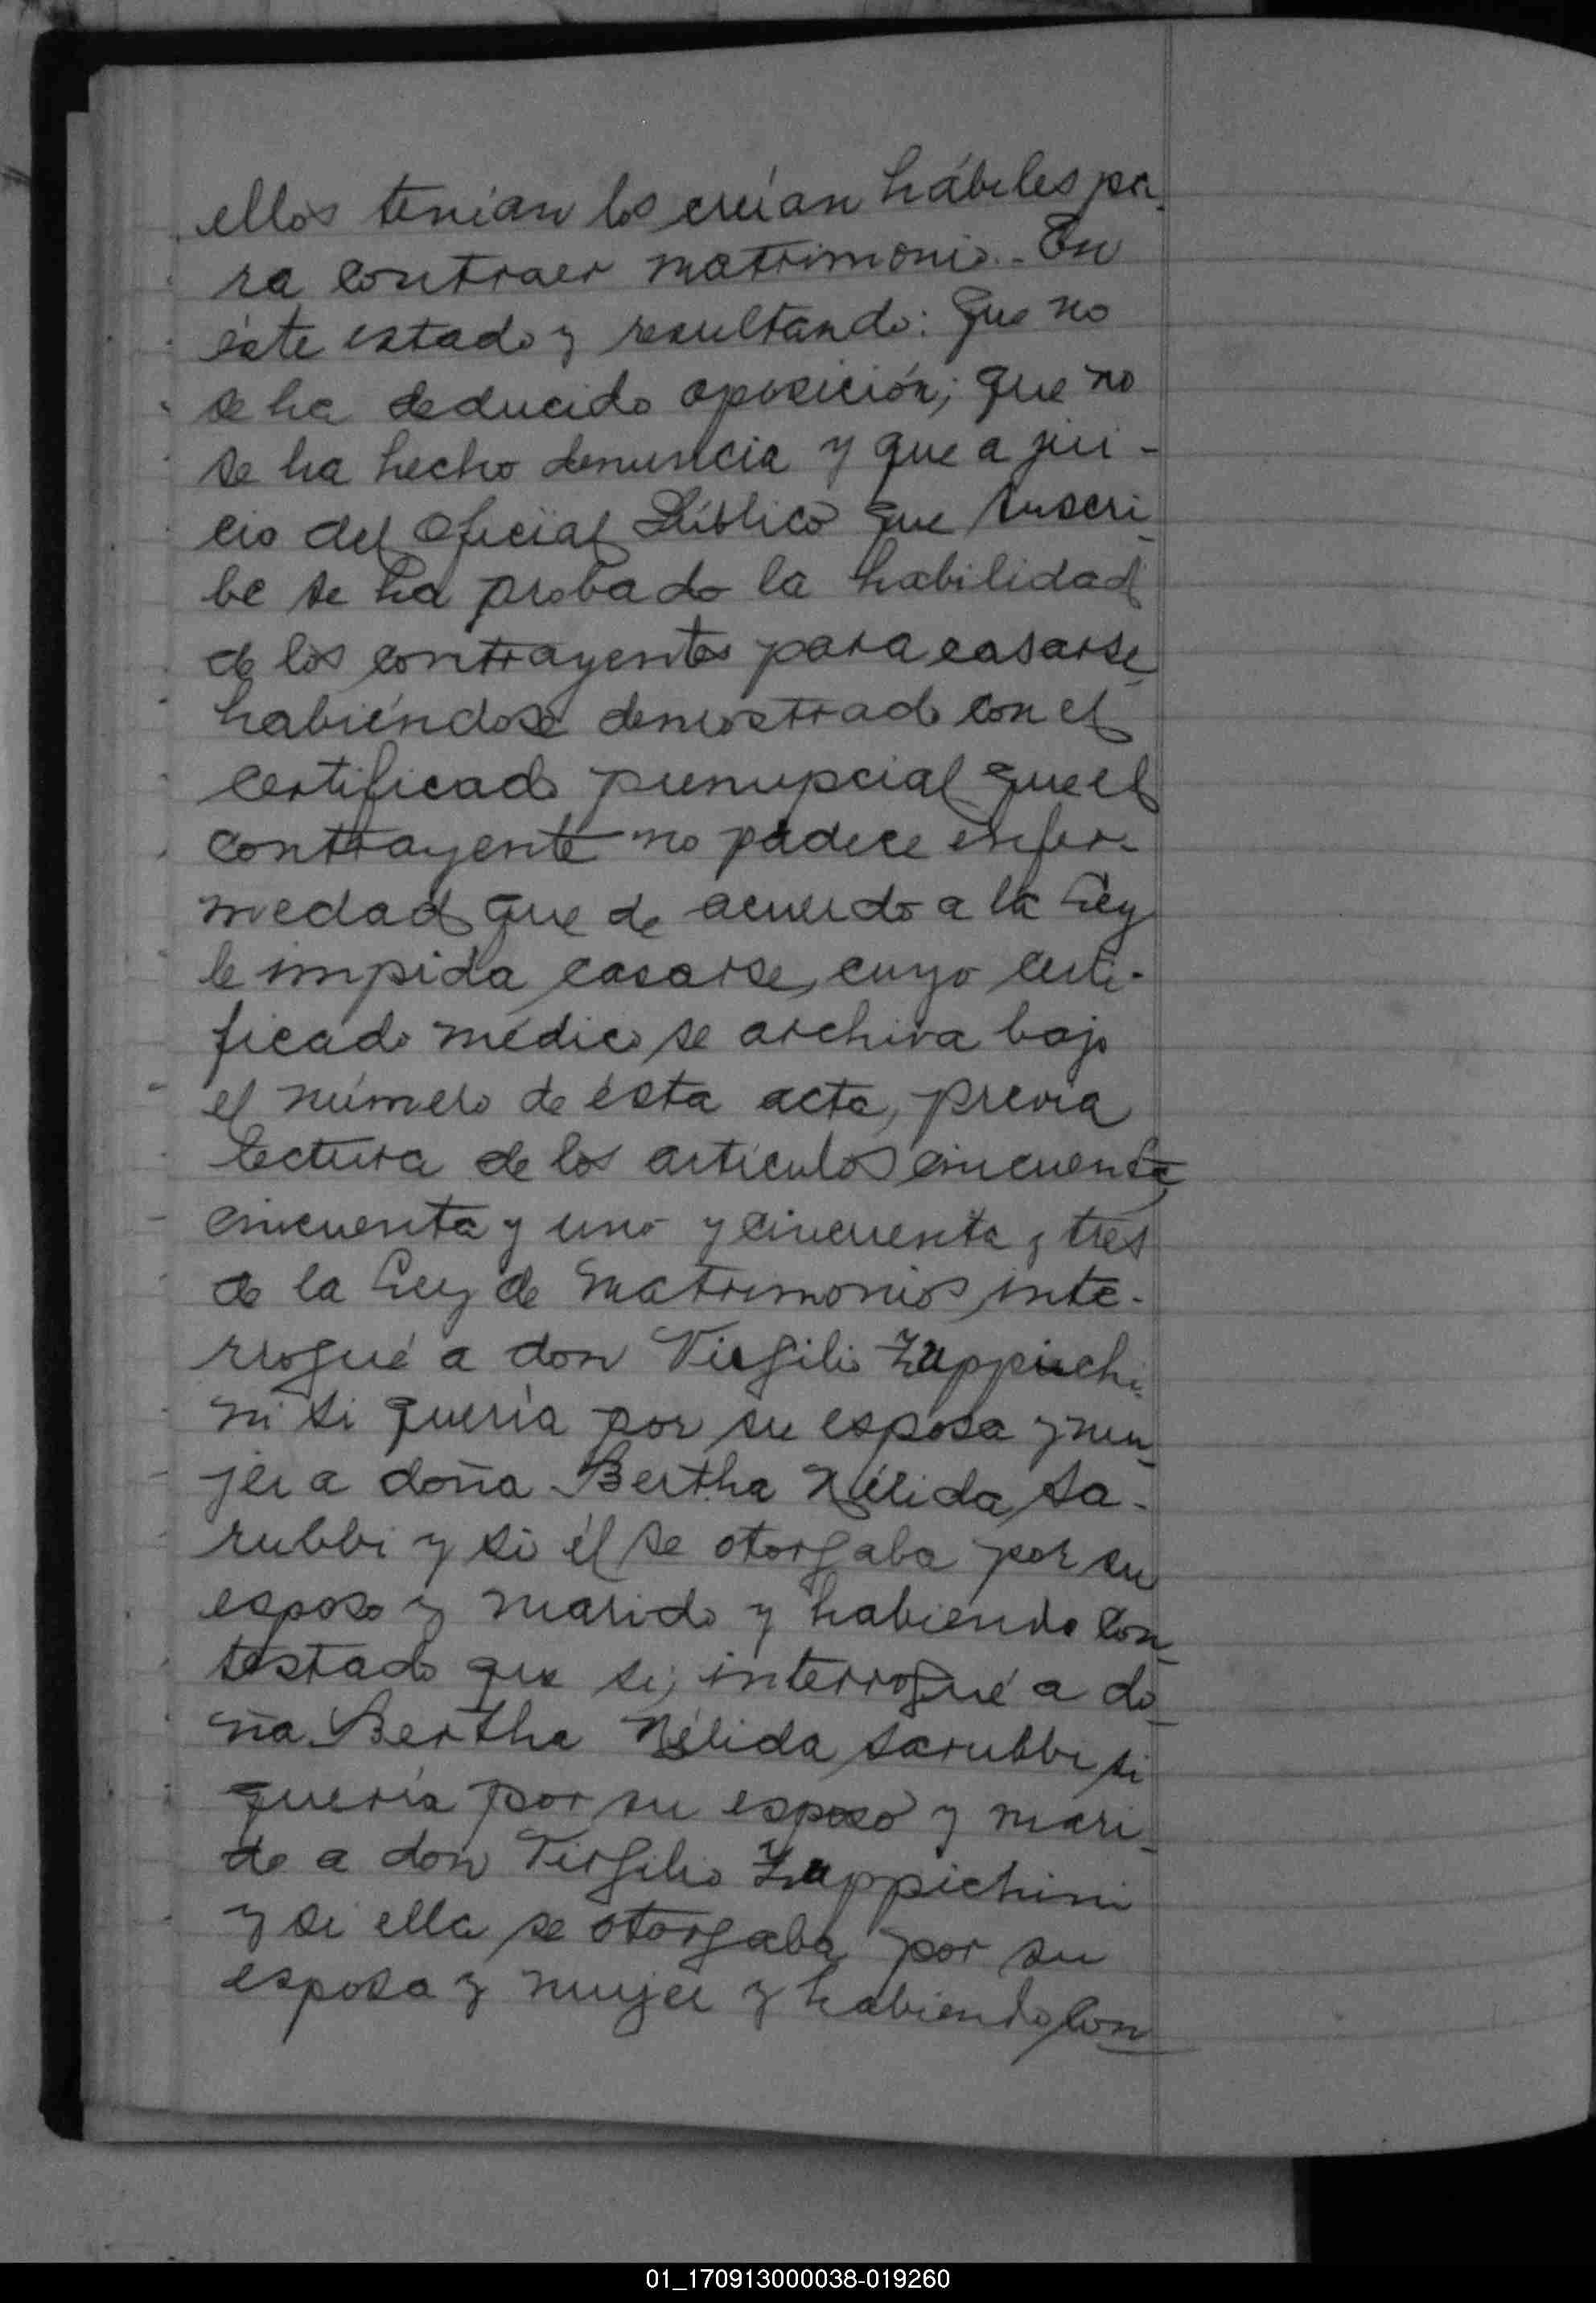 ellos tenían los creían hábiles pa-
ra contraer matrimonio.- En
éste estado y resultando: Que no
se ha deducido oposición; que no
se ha hecho denuncia y que a jui-
cio del Oficial Público que suscri-
be se ha probado la habilidad
de los contrayentes para casarse,
habiéndose demostrado con el
certificado prenupcial que el
contrayente no padece enfer-
medad que de acuerdo a la Ley
le impida casarse, cuyo certi-
ficado médico se archiva bajo
el número de ésta acta, previa
lectura de los artículos cincuenta,
cincuenta y uno y cincuenta y tres
de la Ley de Matrimonios, inte-
rrogué a don Virgilio Zuppichi-
ni si quería por su esposa y mu-
jer a doña Bertha Nélida Sa-
rubbi y si él se otorgaba por su
esposo y marido y habiendo con-
testado que si, interrogué a do-
ña Bertha Nélida Sarubbi si
quería por su esposo y mari-
do a don Virgilio Zuppichini
y si ella se otorgaba por su
esposa y mujer y habiendo con-
01_170913000038-019260